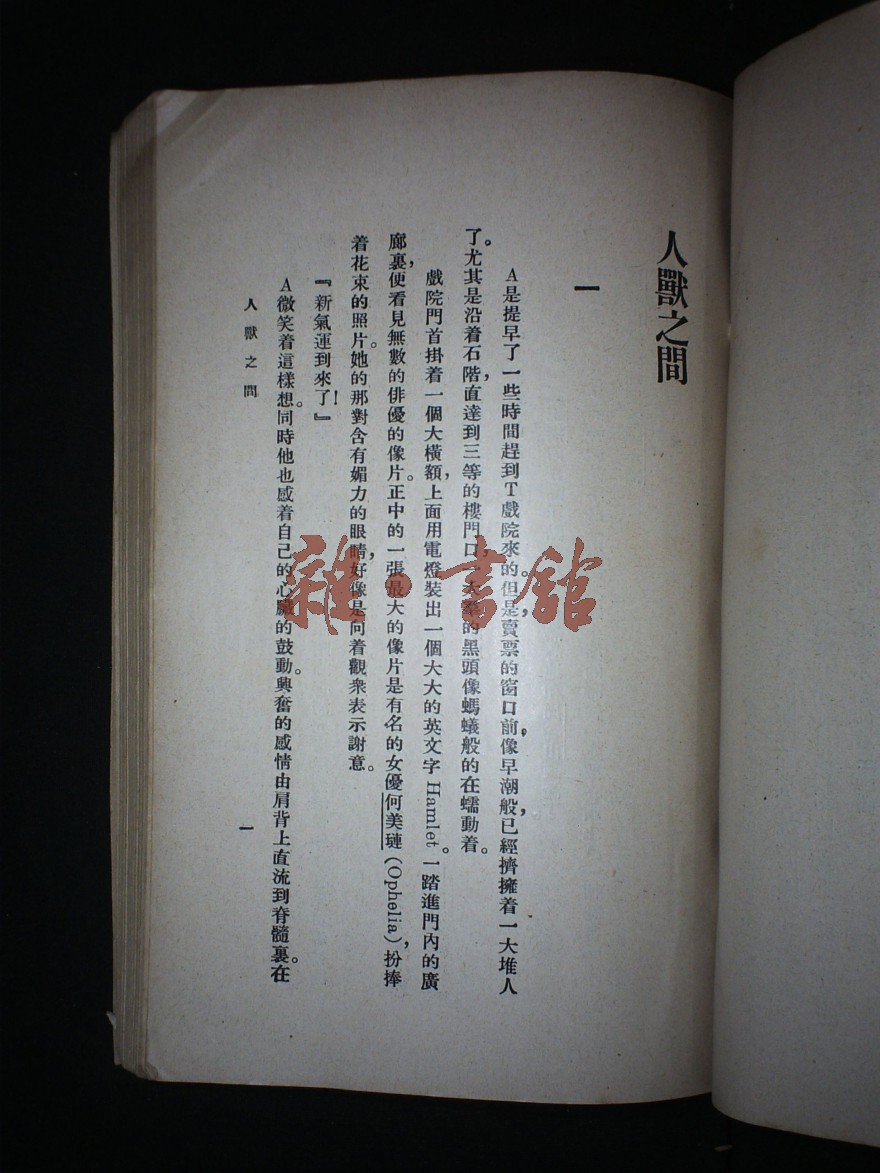 人獸之間
一
A是提早了一些時間趕到T戲院來的。但是，賣票的窗口前，像早潮般，已經擠擁着一大堆人
了。尤其是沿着石階，直達到三等的樓門口，一大羣的黑頭像螞蟻般的在蠕動着。
戲院門首掛着一個大橫額，上面用電燈裝出一個大大的英文字Hamlet。一踏進門內的廣
廊裏，便看見無數的俳優的像片。正中的一張最大的像片是有名的女優何美璉(Ophelia)，扮捧
着花束的照片。她的那對含有媚力的眼睛，好像是向着觀衆表示謝意。
『新氣運到來了！』
A微笑着這樣想。同時他也感着自己的心臟的鼓動。興奮的感情由肩背上直流到脊髓裏。在
人獸之間
一
雜·書館